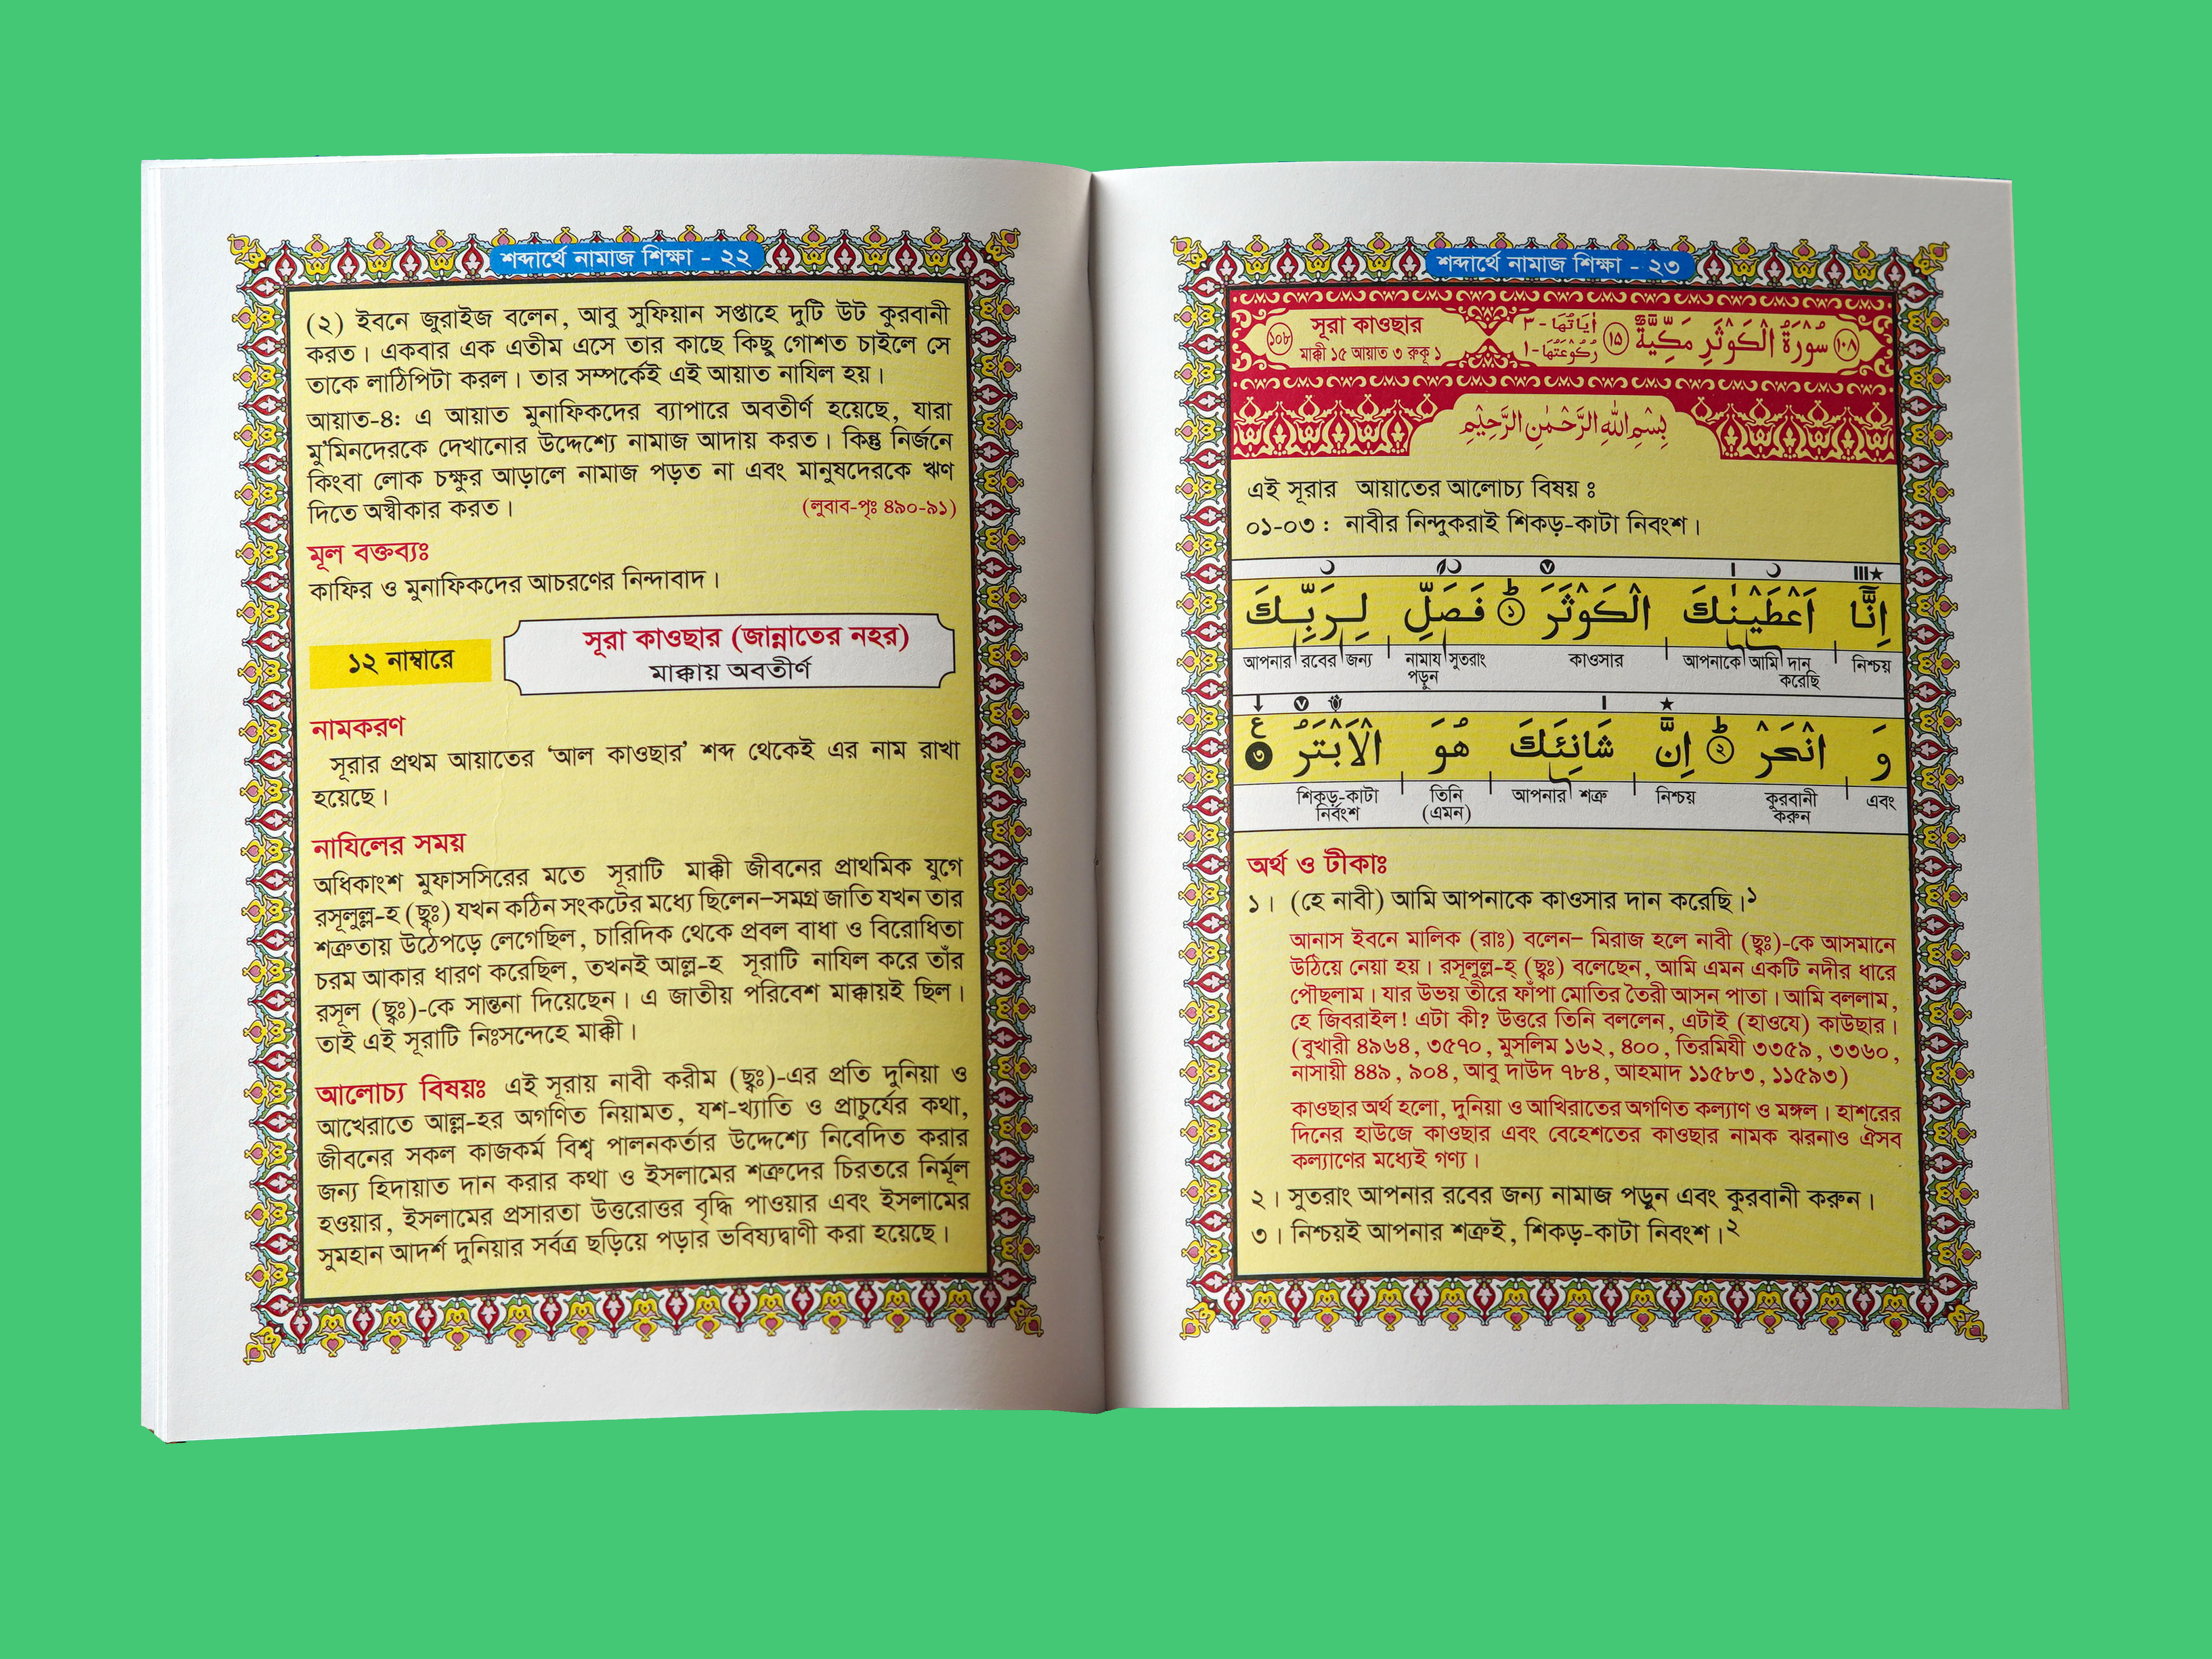 শব্দার্থে নামাজ শিক্ষা - ২২
(২) ইবনে জুরাইজ বলেন, আবু সুফিয়ান সপ্তাহে দুটি উট কুরবানী
করত। একবার এক এতীম এসে তার কাছে কিছু গোশত চাইলে সে
তাকে লাঠিপিটা করল। তার সম্পর্কেই এই আয়াত নাযিল হয়।
আয়াত-৪: এ আয়াত মুনাফিকদের ব্যাপারে অবতীর্ণ হয়েছে, যারা
মু'মিনদেরকে দেখানোর উদ্দেশ্যে নামাজ আদায় করত। কিন্তু নির্জনে
কিংবা লোক চক্ষুর আড়ালে নামাজ পড়ত না এবং মানুষদেরকে ঋণ
দিতে অস্বীকার করত। (লুবাব-পৃঃ ৪৯০-৯১)
মূল বক্তব্যঃ
কাফির ও মুনাফিকদের আচরণের নিন্দাবাদ।
১২ নাম্বারে
সূরা কাওছার (জান্নাতের নহর)
মাক্কায় অবতীর্ণ
নামকরণ
সূরার প্রথম আয়াতের ‘আল কাওছার’ শব্দ থেকেই এর নাম রাখা
হয়েছে।
নাযিলের সময়
অধিকাংশ মুফাসসিরের মতে সূরাটি মাক্কী জীবনের প্রাথমিক যুগে
রসূলুল্ল-হ (ছ্বঃ) যখন কঠিন সংকটের মধ্যে ছিলেন–সমগ্র জাতি যখন তার
শত্রুতায় উঠেপড়ে লেগেছিল, চারিদিক থেকে প্রবল বাধা ও বিরোধিতা
চরম আকার ধারণ করেছিল, তখনই আল্ল-হ সূরাটি নাযিল করে তাঁর
রসূল (ছ্বঃ)-কে সান্তনা দিয়েছেন। এ জাতীয় পরিবেশ মাক্কায়ই ছিল।
তাই এই সূরাটি নিঃসন্দেহে মাক্কী।
আলোচ্য বিষয়ঃ এই সূরায় নাবী করীম (ছ্বঃ)-এর প্রতি দুনিয়া ও
আখেরাতে আল্ল-হর অগণিত নিয়ামত, যশ-খ্যাতি ও প্রাচুর্যের কথা,
জীবনের সকল কাজকর্ম বিশ্ব পালনকর্তার উদ্দেশ্যে নিবেদিত করার
জন্য হিদায়াত দান করার কথা ও ইসলামের শত্রুদের চিরতরে নির্মূল
হওয়ার, ইসলামের প্রসারতা উত্তরোত্তর বৃদ্ধি পাওয়ার এবং ইসলামের
সুমহান আদর্শ দুনিয়ার সর্বত্র ছড়িয়ে পড়ার ভবিষ্যদ্বাণী করা হয়েছে।
শব্দার্থে নামাজ শিক্ষা - ২৩
১০৮ সূরা কাওছার
মাক্কী ১৫ আয়াত ৩ রুকূ ১
اٰيَاتُهَا - ٣
رُكُوْعُهَا - ١
١٠٨ سُوْرَةُ الْكَوْثَرِ مَكِّيَّةٌ ١٥
بِسْمِ اللهِ الرَّحْمٰنِ الرَّحِيْمِ
এই সূরার আয়াতের আলোচ্য বিষয় ঃ
০১-০৩ : নাবীর নিন্দুকরাই শিকড়-কাটা নিবংশ।
اِنَّا اَعْطَيْنٰكَ الْكَوْثَرَ ط ١ فَصَلِّ لِرَبِّكَ
আপনার রবের জন্য নামায সুতরাং কাওসার আপনাকে আমি দান নিশ্চয়
পড়ুন করেছি
وَ انْحَرْ ط ٢ اِنَّ شَانِئَكَ هُوَ الْاَبْتَرُ ع ٣
শিকড়-কাটা তিনি আপনার শত্রু নিশ্চয় কুরবানী এবং
নির্বংশ (এমন) করুন
অর্থ ও টীকাঃ
১। (হে নাবী) আমি আপনাকে কাওসার দান করেছি।১
আনাস ইবনে মালিক (রাঃ) বলেন– মিরাজ হলে নাবী (ছ্বঃ)-কে আসমানে
উঠিয়ে নেয়া হয়। রসূলুল্ল-হ্ (ছ্বঃ) বলেছেন, আমি এমন একটি নদীর ধারে
পৌছলাম। যার উভয় তীরে ফাঁপা মোতির তৈরী আসন পাতা। আমি বললাম,
হে জিবরাইল! এটা কী? উত্তরে তিনি বললেন, এটাই (হাওযে) কাউছার।
(বুখারী ৪৯৬৪, ৩৫৭০, মুসলিম ১৬২, ৪০০, তিরমিযী ৩৩৫৯, ৩৩৬০,
নাসায়ী ৪৪৯, ৯০৪, আবু দাউদ ৭৮৪, আহমাদ ১১৫৮৩, ১১৫৯৩)
কাওছার অর্থ হলো, দুনিয়া ও আখিরাতের অগণিত কল্যাণ ও মঙ্গল। হাশরের
দিনের হাউজে কাওছার এবং বেহেশতের কাওছার নামক ঝরনাও ঐসব
কল্যাণের মধ্যেই গণ্য।
২। সুতরাং আপনার রবের জন্য নামাজ পড়ুন এবং কুরবানী করুন।
৩। নিশ্চয়ই আপনার শত্রুই, শিকড়-কাটা নিবংশ।২